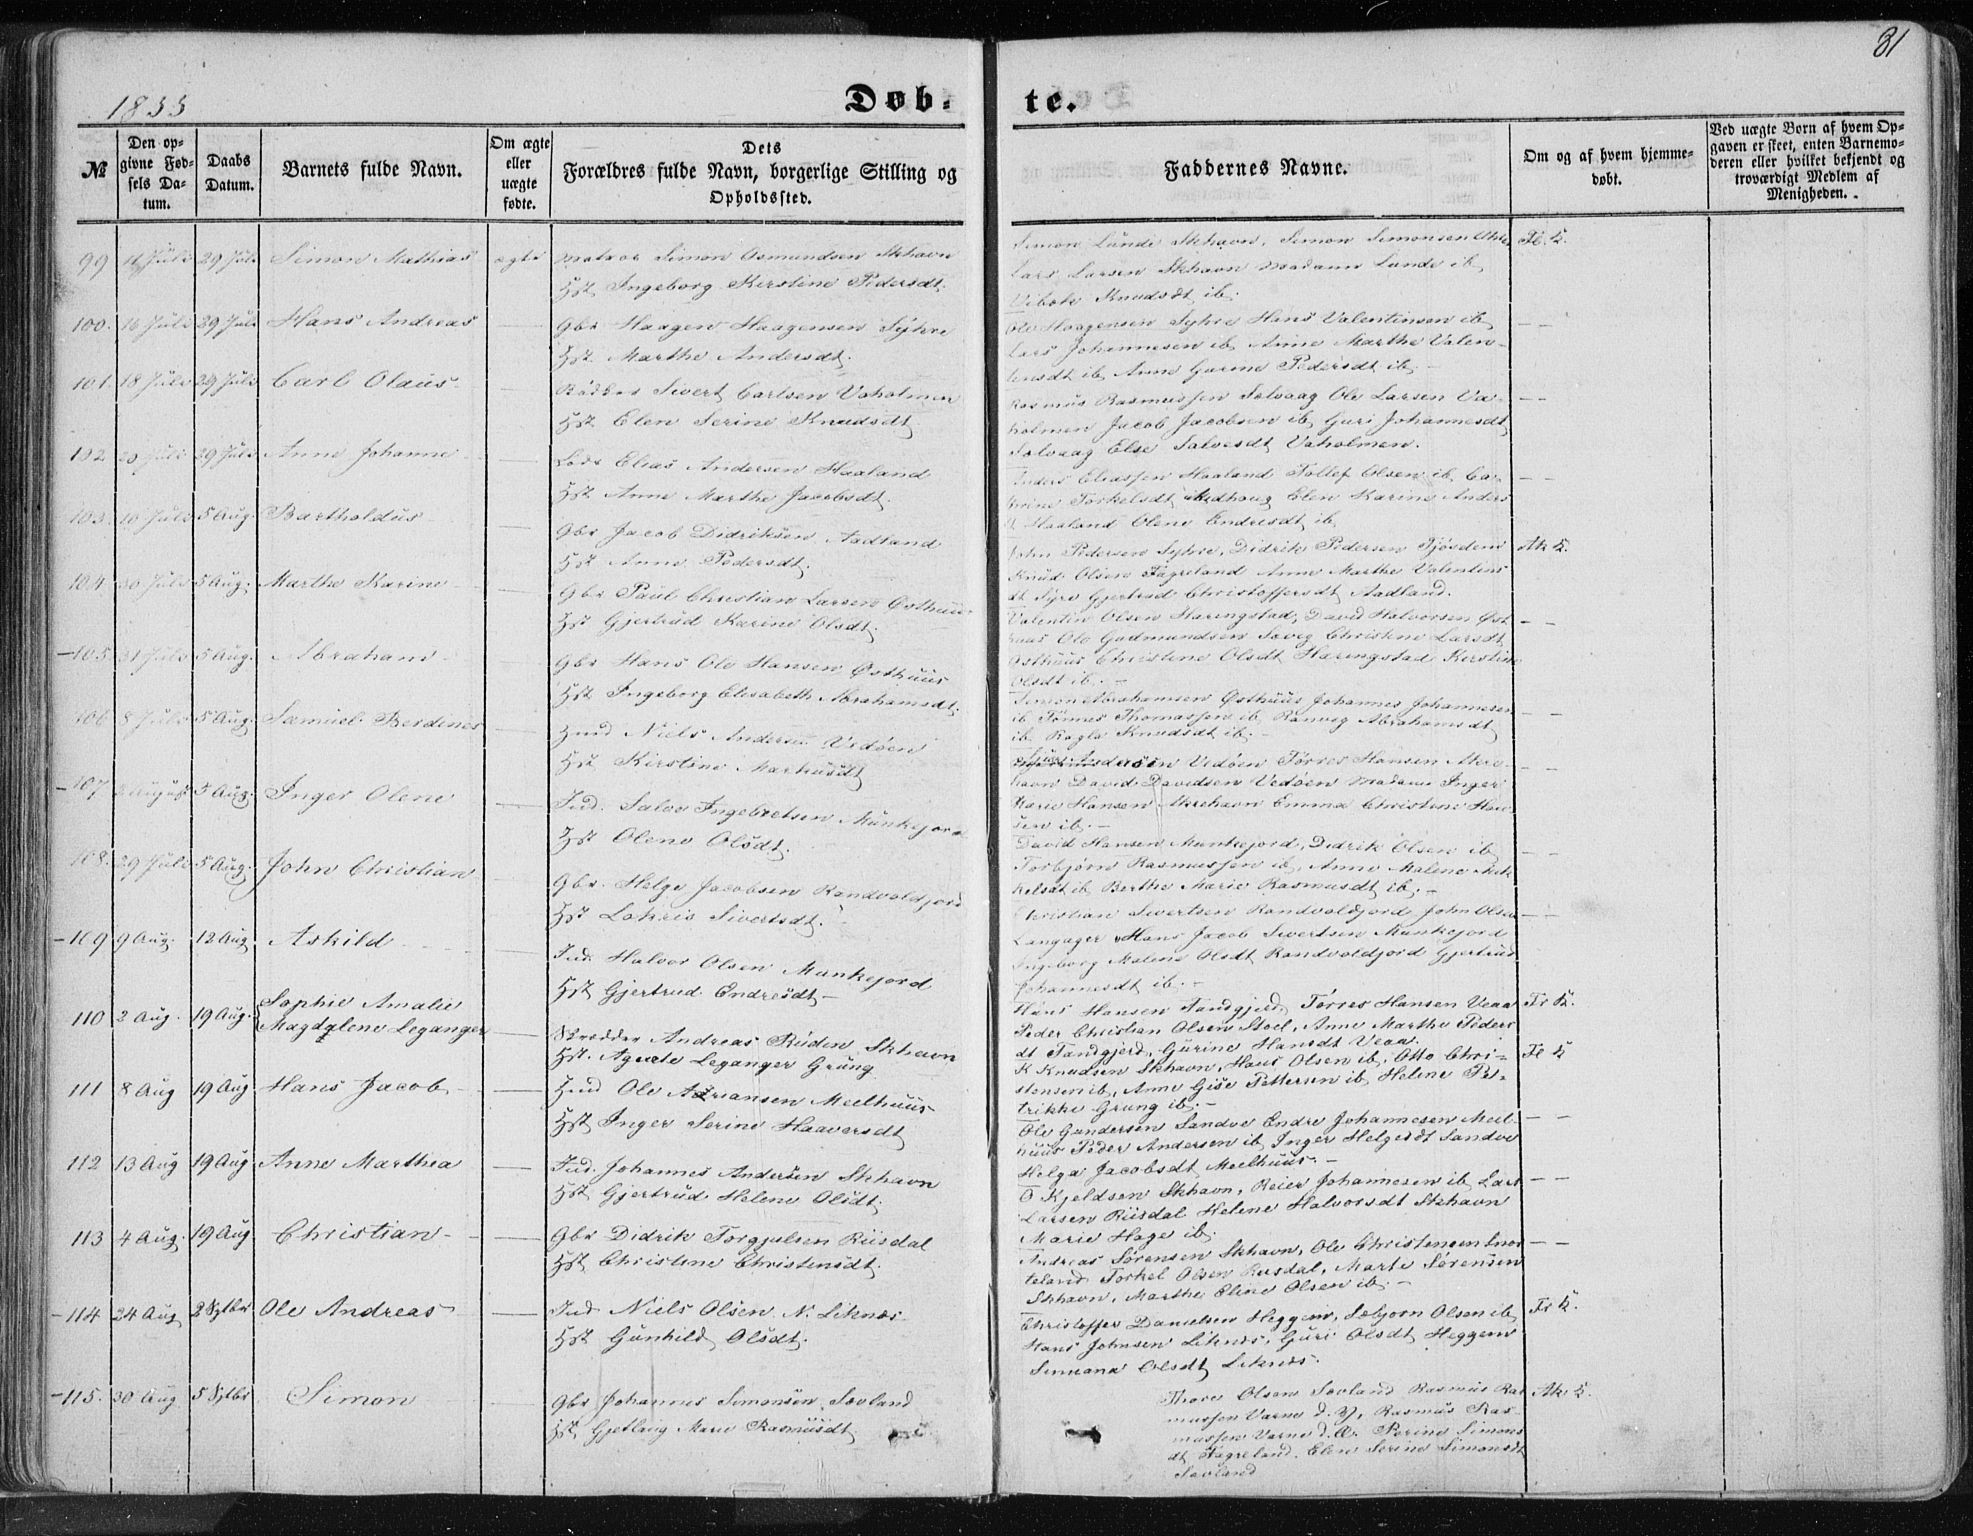 31
1855
Døb-
te.
№
Den op-
givne Fød-
sels Da-
tum.
Daabs
Datum.
Barnets fulde Navn.
Om ægte
eller
uægte
fødte.
Dets
Forældres fulde Navn, borgerlige Stilling og
Opholdssted.
Faddernes Navne.
Om og af hvem hjemme-
døbt.
Ved uægte Børn af hvem Op-
gaven er skeet, enten Barnemo-
deren eller hvilket bekjendt og
troværdigt Medlem af
Menigheden.
99 11 Juli 29 Juli Simon Mathias ægte Matros Simon Asmundsen Skhavn
Hst Ingeborg Kirstine Pedersdt.
Simon Lunde Skhavn, Simon Simonsen
Lars Larsen Skhavn Madam Lunde ib
Vibeke Knudsdt ib.
100. 16 Juli 29 Juli Hans Andreas Gbr Haagen Haagensen Syhre
Hst Marthe Andersdt.
Ole Haagensen Syhre Hans Valentinsen ib
Lars Johannesen ib Anne Marthe Valen-
tinsdt ib Anne Gurine Pedersdt ib
101. 18 Juli 29 Juli Carl Olaus Bødker Sivert Carlsen Vaholmen
Hst Elen Serine Knudsdt
Rasmus Rasmussen Solvaag Ole Larsen Va-
holmen Jacob Jacobsen ib Guri Johannesdt
Solvaag Else Salvesdt Vaholmen.
102 20 Juli 29 Juli Anne Johanne Lods Elias Andersen Haaland
Hst Anne Marthe Jacobsdt.
Anders Eliassen Haaland Tollef Olsen ib Ca-
thrine Torkelsdt Elen Karine Anders
dt Haaland Olene Endresdt ib
103. 10 Juli 5 Aug. Bartholdus Gbr Jacob Didriksen Aadland
Hst Anne Pedersdt.
John Pedersen Syhre, Didrik Pedersen
Knud Olsen Fagreland Anne Marthe Valentins
dt Syre Gjertrud Christoffersdt Aadland.
104 30 Juli 5 Aug. Marthe Karine Gbr Paul Christian Larsen Østhuus
Hst Gjertrud Karine Olsdt.
Valentin Olsen Haringstad, David Halvorsen Øst
huus Ole Gudmundsen Christine Larsdt
Østhuus Christine Olsdt Haringstad Kirstine
Olsdt ib.
-105. 31 Juli 5 Aug. Abraham Gbr Hans Ole Hansen Østhuus
Hst Ingeborg Elisabeth Abrahamsdt.
Simon Abrahamsen Østhuus Johannes Johannesen
ib Tønnes Thomassen ib Ranveg Abrahamsdt
ib Knudsdt ib.
106 8 Juli 5 Aug. Samuel Berdines Hmd Niels Andersen Vedøen
Hst Kirstine Markusdt
Andersen Vedøen Tørres Hansen Akre-
havn David Davidsen Vedøen Madame Inger
Marie Hansen Akrehavn Emma Christine Han-
sen ib.
-107 August 5 Aug. Inger Olene Ind. Salve Ingebretsen Munkejord
Hst Olene Olsdt.
David Hansen Munkejord, Didrik Olsen ib
Torbjørn Rasmussen ib, Anne Malene Mik-
kelsdt ib Berthe Marie Rasmusdt ib.
108. 29 Juli 5 Aug. John Christian Gbr. Helge Jacobsen Randvoldjord
Hst Sivertsdt.
Christian Sivertsen Randvoldjord John Olsen
Langager Hans Jacob Sivertsen Munkejord
Ingeborg Malene Olsdt Randvoldjord Gjertrud
Johannesdt ib.
-109 9 Aug. 12 Aug Askild Ind. Halvor Olsen Munkejord
Hst Gjertrud Endresdt
Hans Hansen Tandgjerd, Tørres Hansen Veaa
Peder Christian Olsen Stoel, Anne Marthe Peders
dt Tandgjerd, Gurine Hansdt Veaa.
110 2 Aug. 19 Aug. Sophie Amalie
Magdalene Leganger Skrædder Andreas Ruden Skhavn
Hst. Agate Leganger Grung
K Knudsen Skhavn, Hans Olsen ib, Otto Chri-
stensen ib, Anne Gise Pettersen ib Helene Pet-
trikke Grung ib.
111 8 Aug 19 Aug Hans Jacob Hmd Ole Adriansen Meelhuus
Hst Inger Serine Haaversdt
Ole Gundersen Sandve Endre Johannesen Meel-
huus Peder Andersen ib Inger Helgesdt Sandve
Helga Jacobsdt Meelhuus.
112 13 Aug 19 Aug Anne Marthea Ind. Johannes Andersen Skhavn
Hst Gjertrud Helene Olsdt.
O Kjeldsen Skhavn, Reier Johannesen ib Lars
Larsen Riisdal Helene Halvorsdt Skhavn
Marie Hage ib.
113 4 Aug. 19 Aug Christian Gbr Didrik Torgjulsen Riisdal
Hst Christine Christensdt.
Andreas Sørensen Skhavn, Ole Christensen Snor
teland Torkel Olsen Risdal, Marte Sørensen
Skhavn, Marthe Eline Olsen ib.
-114 24 Aug 2 Sptbr Ole Andreas Ind Niels Olsen N. Liknes
Hst Gunhild Olsdt.
Christoffer Danielsen Heggem, Sebjørn Olsen ib
Hans Johnsen Liknes, Guri Olsdt Heggem
Olsdt Liknes.
-115. 30 Aug 5 Sptbr Simon Gbr Johannes Simonsen Sevland
Hst Gjetlaug Marie Rasmusdt
Thore Olsen Sevland Rasmus Ras
mussen Varne d. Y, Rasmus Ras-
mussen Varne d. Æ. Perine Simons
dt Fagreland. Elen Serine Simonsdt
Sevland